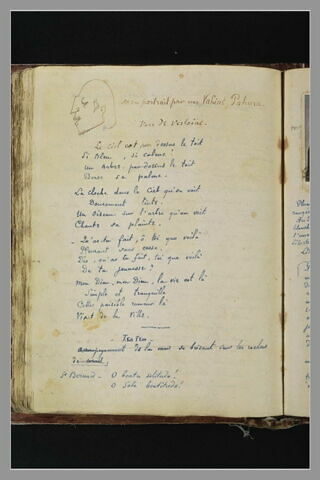 mon portrait par ma Vahiné, Pahura
Vers de Verlaine.
Le ciel est par dessus le toit
Si bleu, si calme.
Un arbre par dessus le toit
Berce sa palme.
La cloche dans le Ciel qu'on voit
Doucement tinte.
Un oiseau sur l'arbre qu'on voit
Chante sa plainte.
Qu'as tu fait, ô toi que voilà
Pleurant sans cesse.
Dis, qu'as tu fait, toi que voilà
De ta jeunesse?
Mon Dieu, mon Dieu, la vie est là
Simple et tranquille
Cette paisible rumeur là
Vient de la ville.
accompagnement de la mer se brisant sur les roches
St Bernard - O beata solitudo!
O Sola beatitudo!